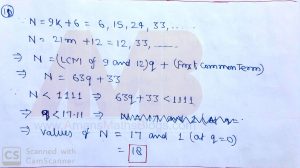 10
N = 9K+6 = 6, 15, 24, 33, .....
N = 21m+12 = 12, 33, .....
⇒ N = (LCM of 9 and 12)q + (First Common Term)
⇒ N = 63q+33
N < 1111 ⇒ 63q+33 < 1111
⇒ q < 17.11 ⇒
⇒ Values of N = 17 and 1 (at q=0)
= 18
CS Scanned with
CamScanner